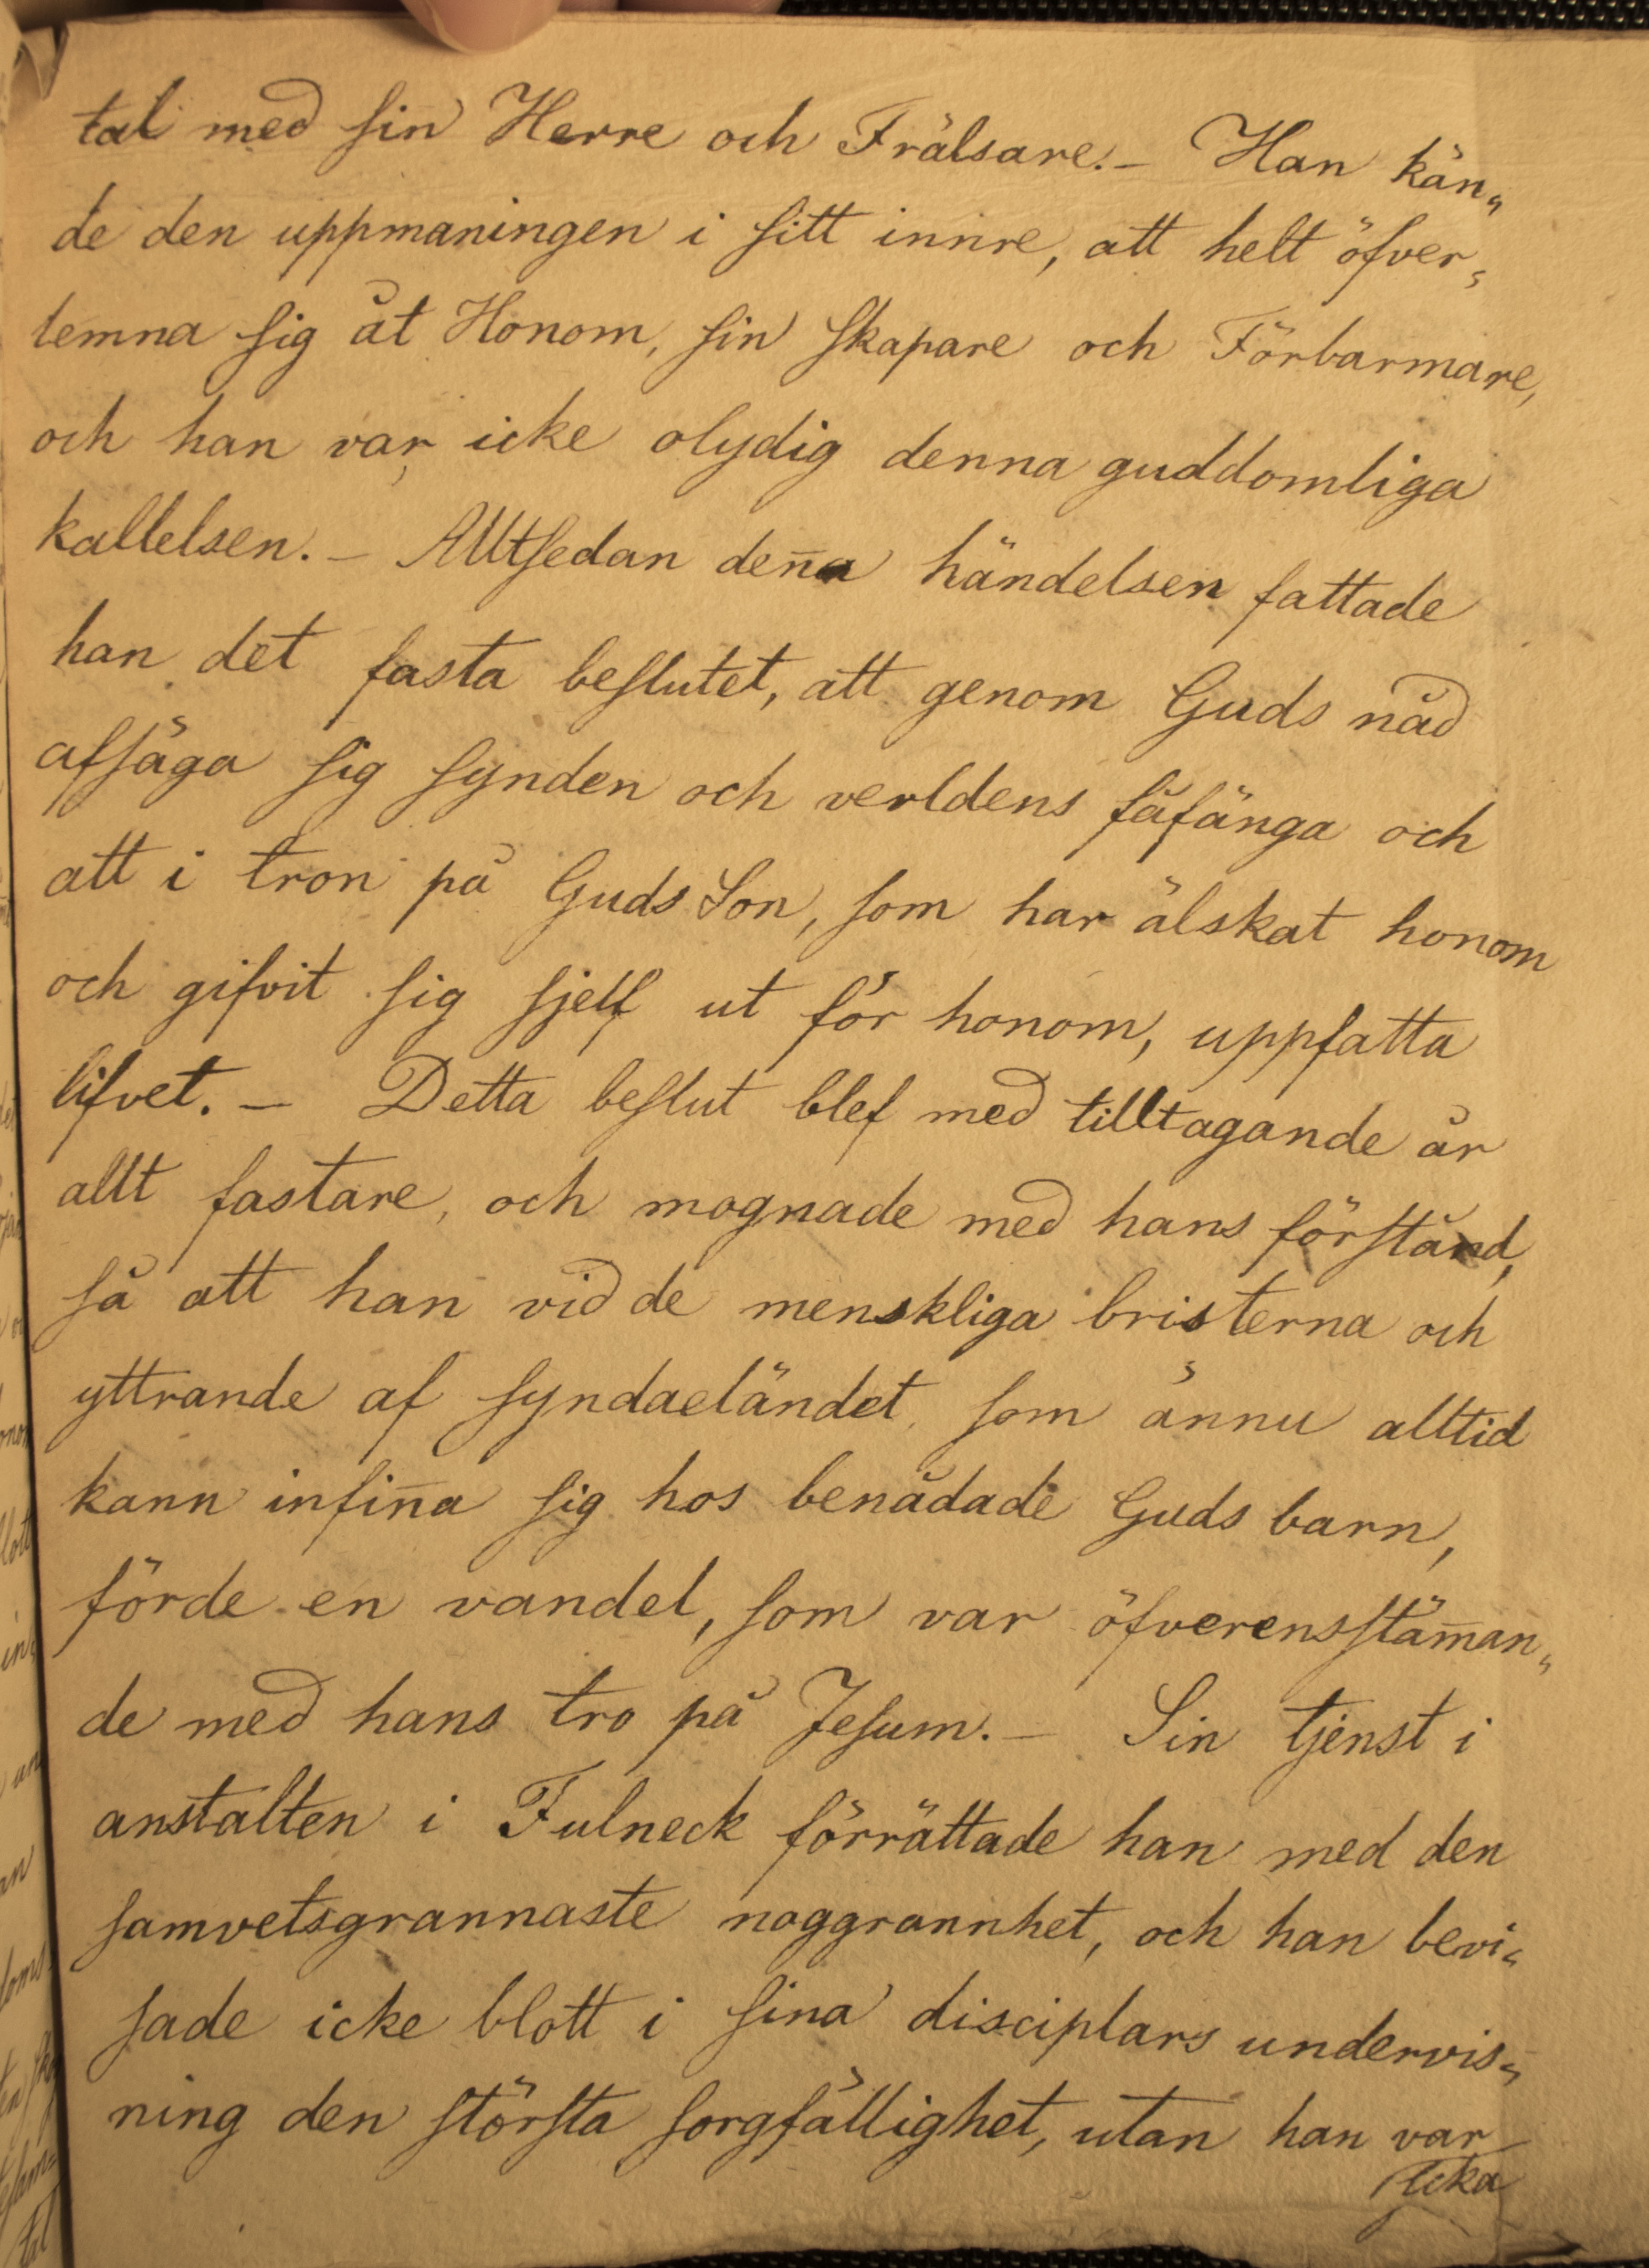 tal med sin Herre och Frälsare. – Han kän„
de den uppmaningen i sitt innre, att helt öfver„
lemna sig åt Honom, sin skapare och Förbarmare,
och han var icke olydig denna guddomliga
kallelsen. – Alltsedan den̄a händelsen fattade
han det fasta beslutet, att genom Guds nåd
afsäga sig synden och verldens fåfänga och
att i tron på Guds Son, som har älskat honom
och gifvit sig sjelf ut för honom, uppfatta
lifvet. – Detta beslut blef med tilltagande år
allt fastare, och mognade med hans förstånd,
så att han vid de menskliga bristerna och
yttrande af syndaeländet, som ännu alltid
kann infin̄a sig hos benådade Guds barn,
förde en vandel, som var öfverensstäm̄an„
de med hans tro på Jesum. – Sin tjenst i
anstalten i Fulneck förrättade han med den
samvetsgrannaste noggrannhet, och han bevi„
sade icke blott i sina disciplars undervis„
ning den största sorgfällighet, utan han var